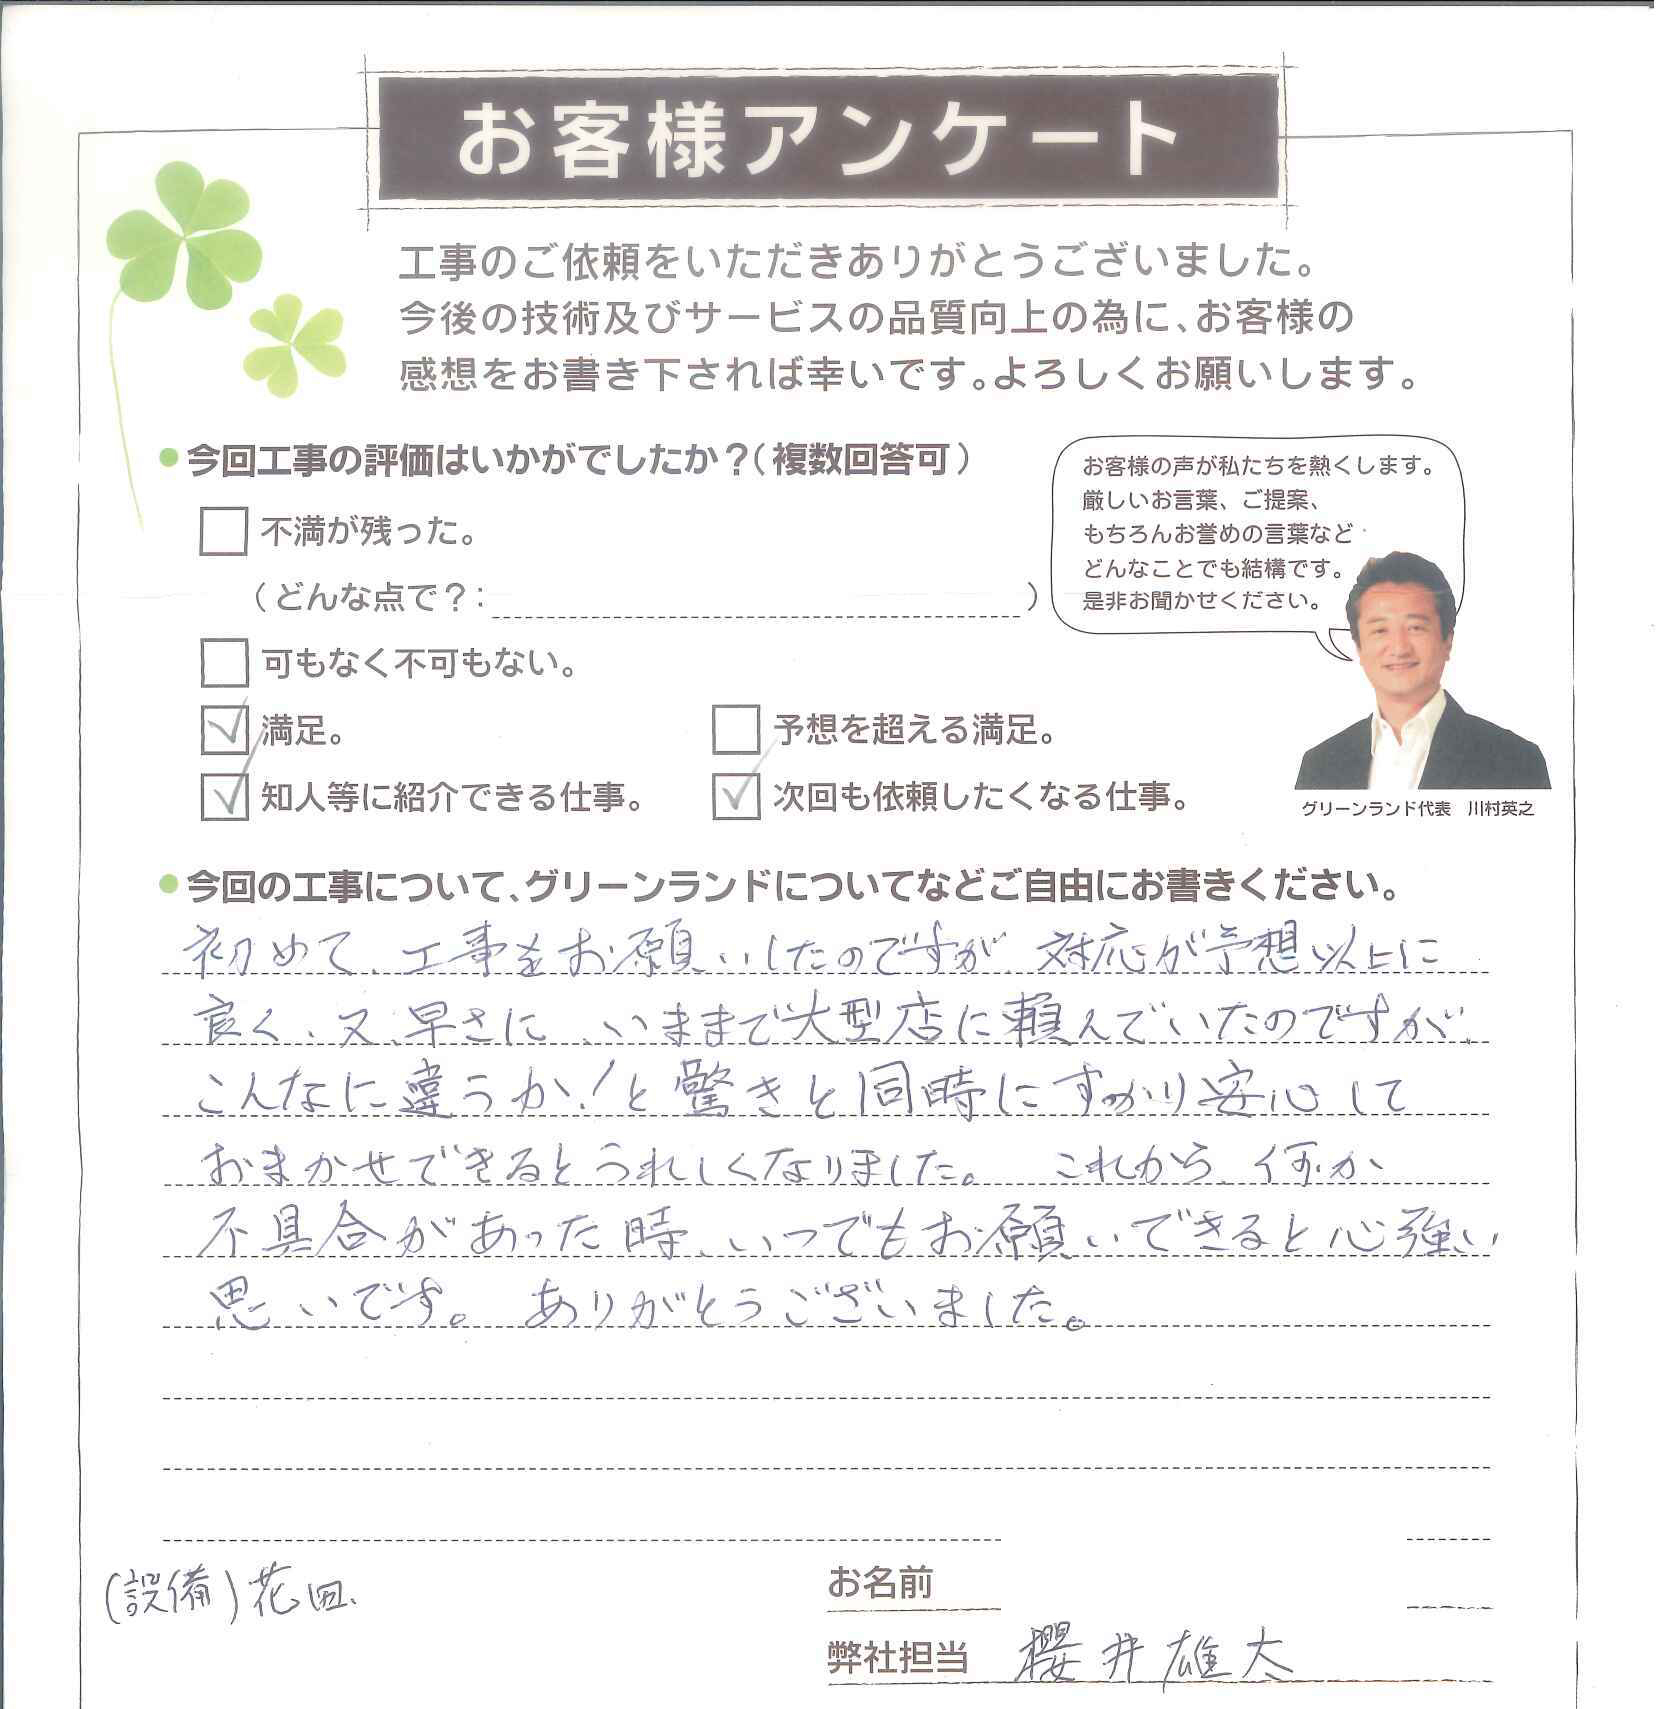 お客様アンケート
工事のご依頼をいただきありがとうございました。
今後の技術及びサービスの品質向上の為に、お客様の
感想をお書き下されば幸いです。よろしくお願いします。
今回工事の評価はいかがでしたか?(複数回答可)
不満が残った。
(どんな点で?: )
可もなく不可もない。
満足。
予想を超える満足。
知人等に紹介できる仕事。
次回も依頼したくなる仕事。
お客様の声が私たちを熱くします。
厳しいお言葉、ご提案、
もちろんお誉めの言葉など
どんなことでも結構です。
是非お聞かせください。
グリーンランド代表 川村英之
今回の工事について、グリーンランドについてなどご自由にお書きください。
初めて、工事をお願いしたのですが、対応が予想以上に
良く、又、早さに、いままで大型店に頼んでいたのですが、
こんなに違うか!と驚きと同時にすっかり安心して
おまかせできるとうれしくなりました。 これから、何か
不具合があった時、いつでもお願いできると心強い
思いです。 ありがとうございました。
(設備)花田
お名前
弊社担当 櫻井雄太